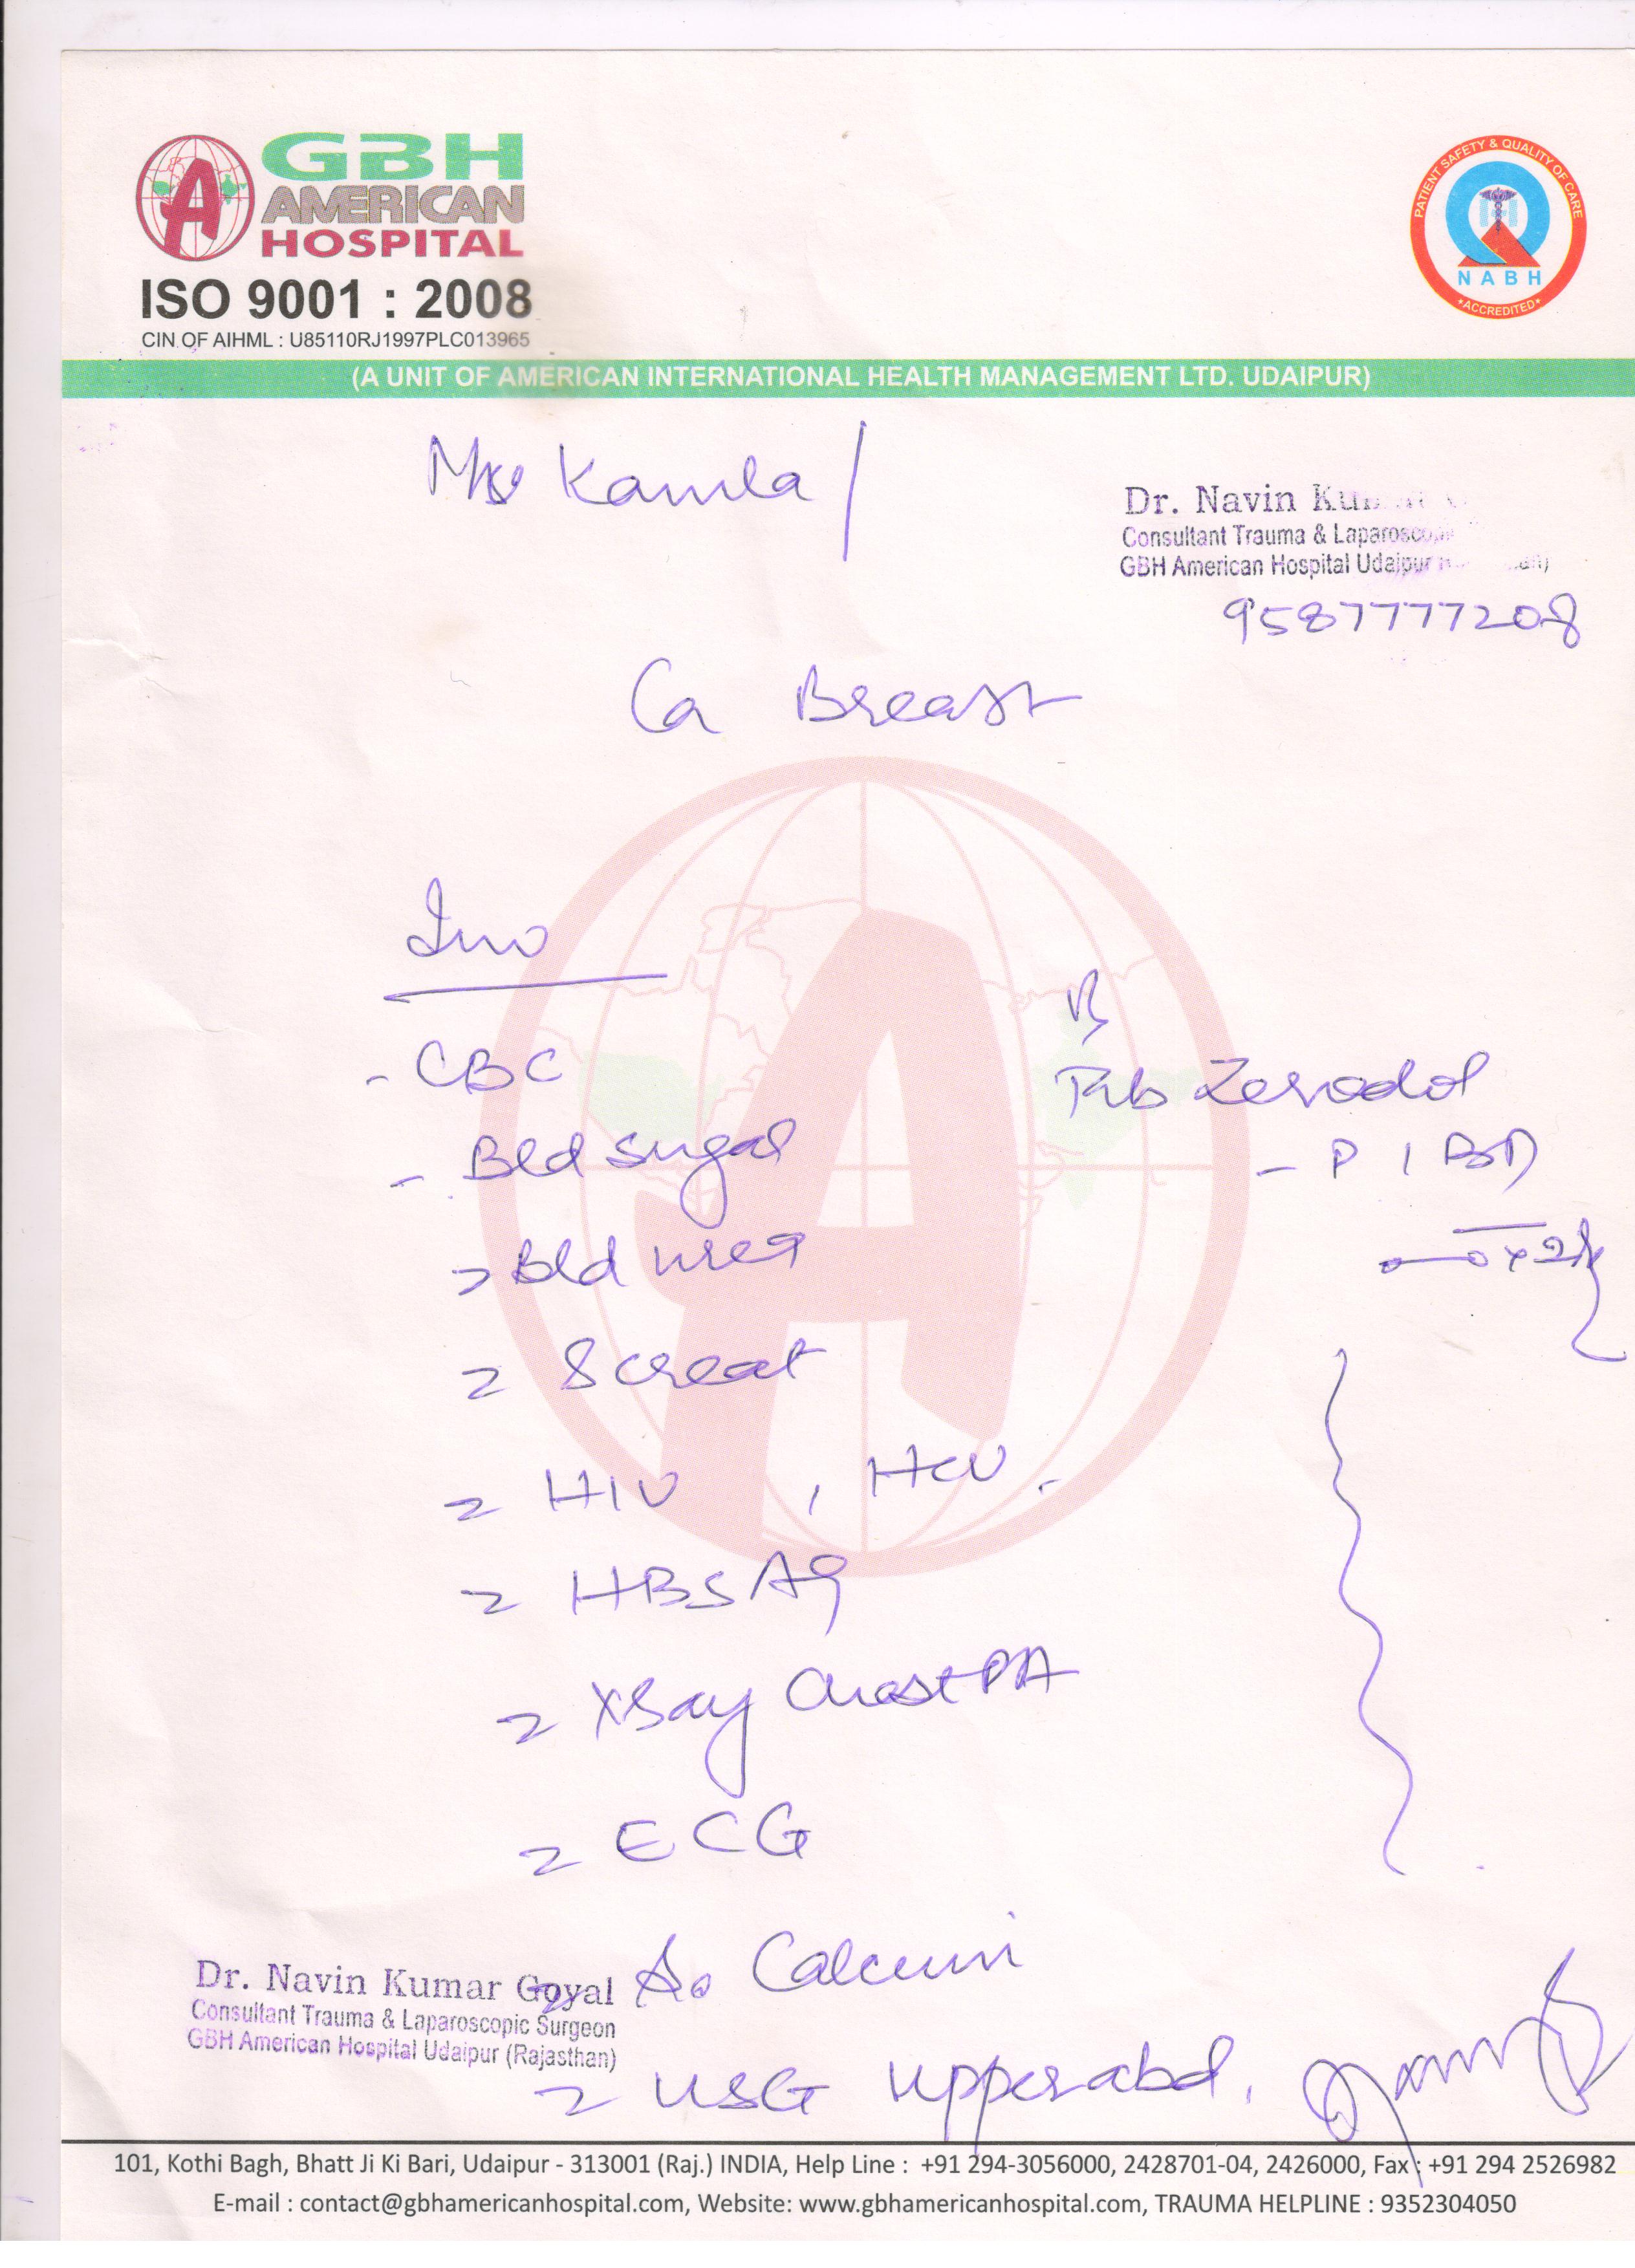 GBH
AMERICAN
HOSPITAL
ISO 9001 : 2008
CIN OF AIHML : U85110RJ1997PLC013965
PATIENT SAFETY & QUALITY OF CARE
NABH
ACCREDITED
(A UNIT OF AMERICAN INTERNATIONAL HEALTH MANAGEMENT LTD. UDAIPUR)
Kamla
Dr. Navin
Consultant Trauma &
GBH American Hospital Udaipur
9587777208
Ca Breast
Inv
- CBC
- Bld sugar
Bld urea
S creat
HIV , HCV.
HBSAg
Xray Chest PA
ECG
S. Calcium
USG upper abd.
Tab Zerodol
- P 1 BD
Dr. Navin Kumar Goyal
Consultant Trauma & Laparoscopic Surgeon
GBH American Hospital Udaipur (Rajasthan)
101, Kothi Bagh, Bhatt Ji Ki Bari, Udaipur - 313001 (Raj.) INDIA, Help Line : +91 294-3056000, 2428701-04, 2426000, Fax : +91 294 2526982
E-mail : contact@gbhamericanhospital.com, Website: www.gbhamericanhospital.com, TRAUMA HELPLINE : 9352304050